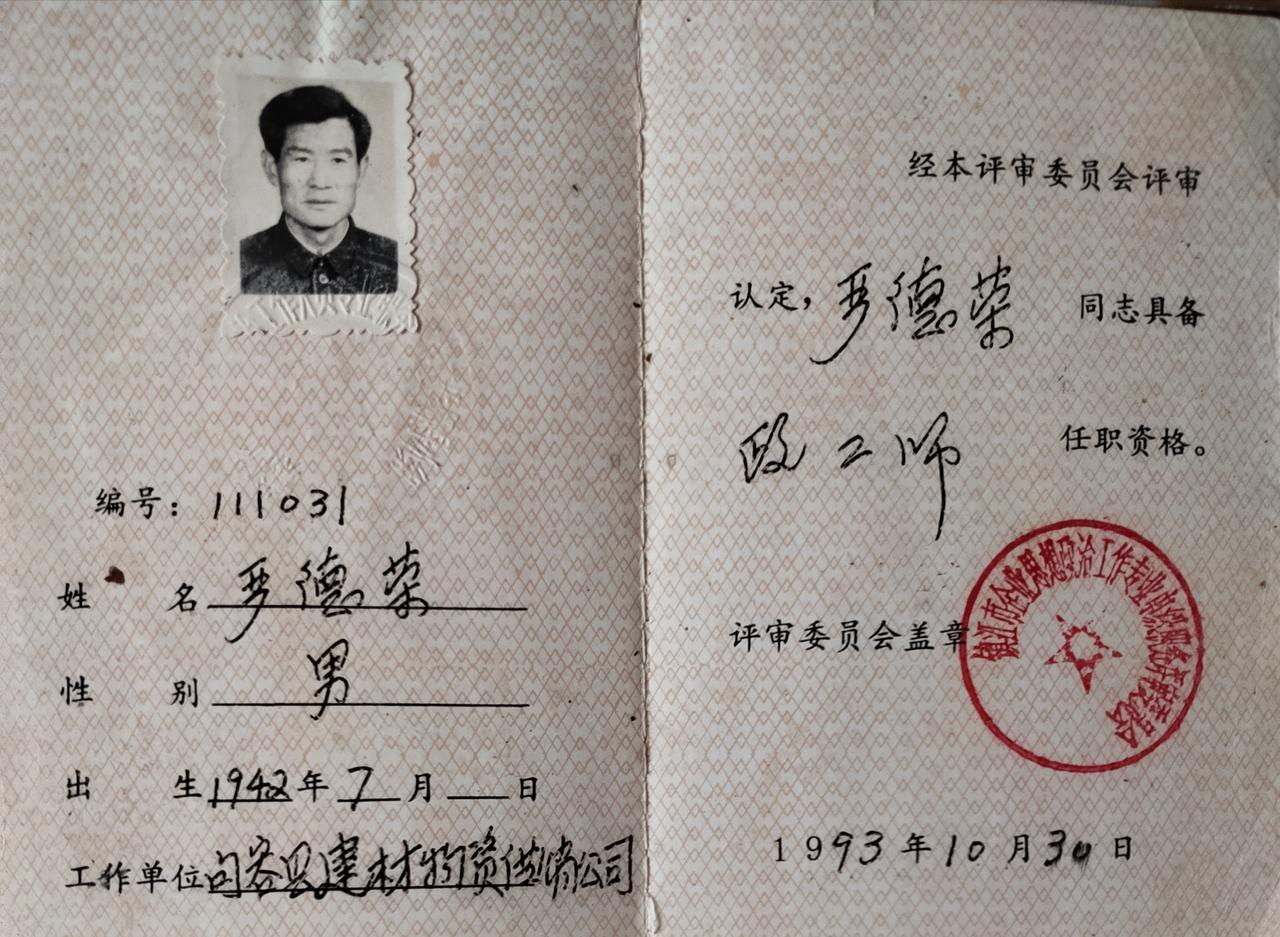 编号：111031
姓名 严德荣
性别 男
出生1942年7月 日
工作单位句容县建材物资供销公司
经本评审委员会评审
认定，严德荣 同志具备
政工师 任职资格。
评审委员会盖章
镇江市企业思想政治工作专业中级职务评审委员会
1993年10月30日